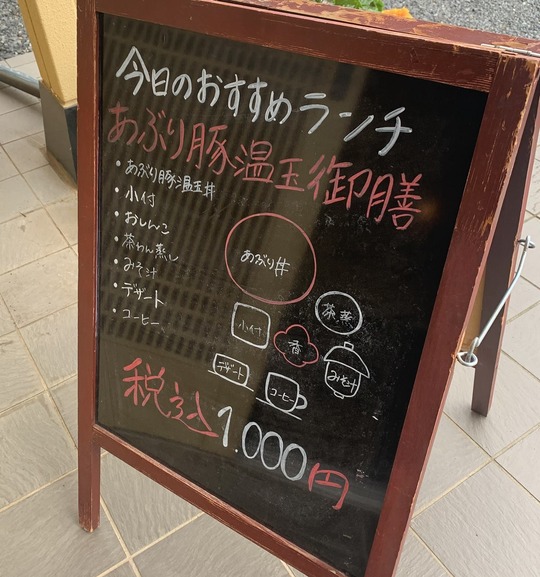 今日のおすすめランチ
あぶり豚温玉御膳
・あぶり豚温玉丼
・小付
・おしんこ
・茶わん蒸し
・みそ汁
・デザート
・コーヒー
あぶり丼
茶蒸
小付
香
みそ汁
デザート
コーヒー
税込1.000円